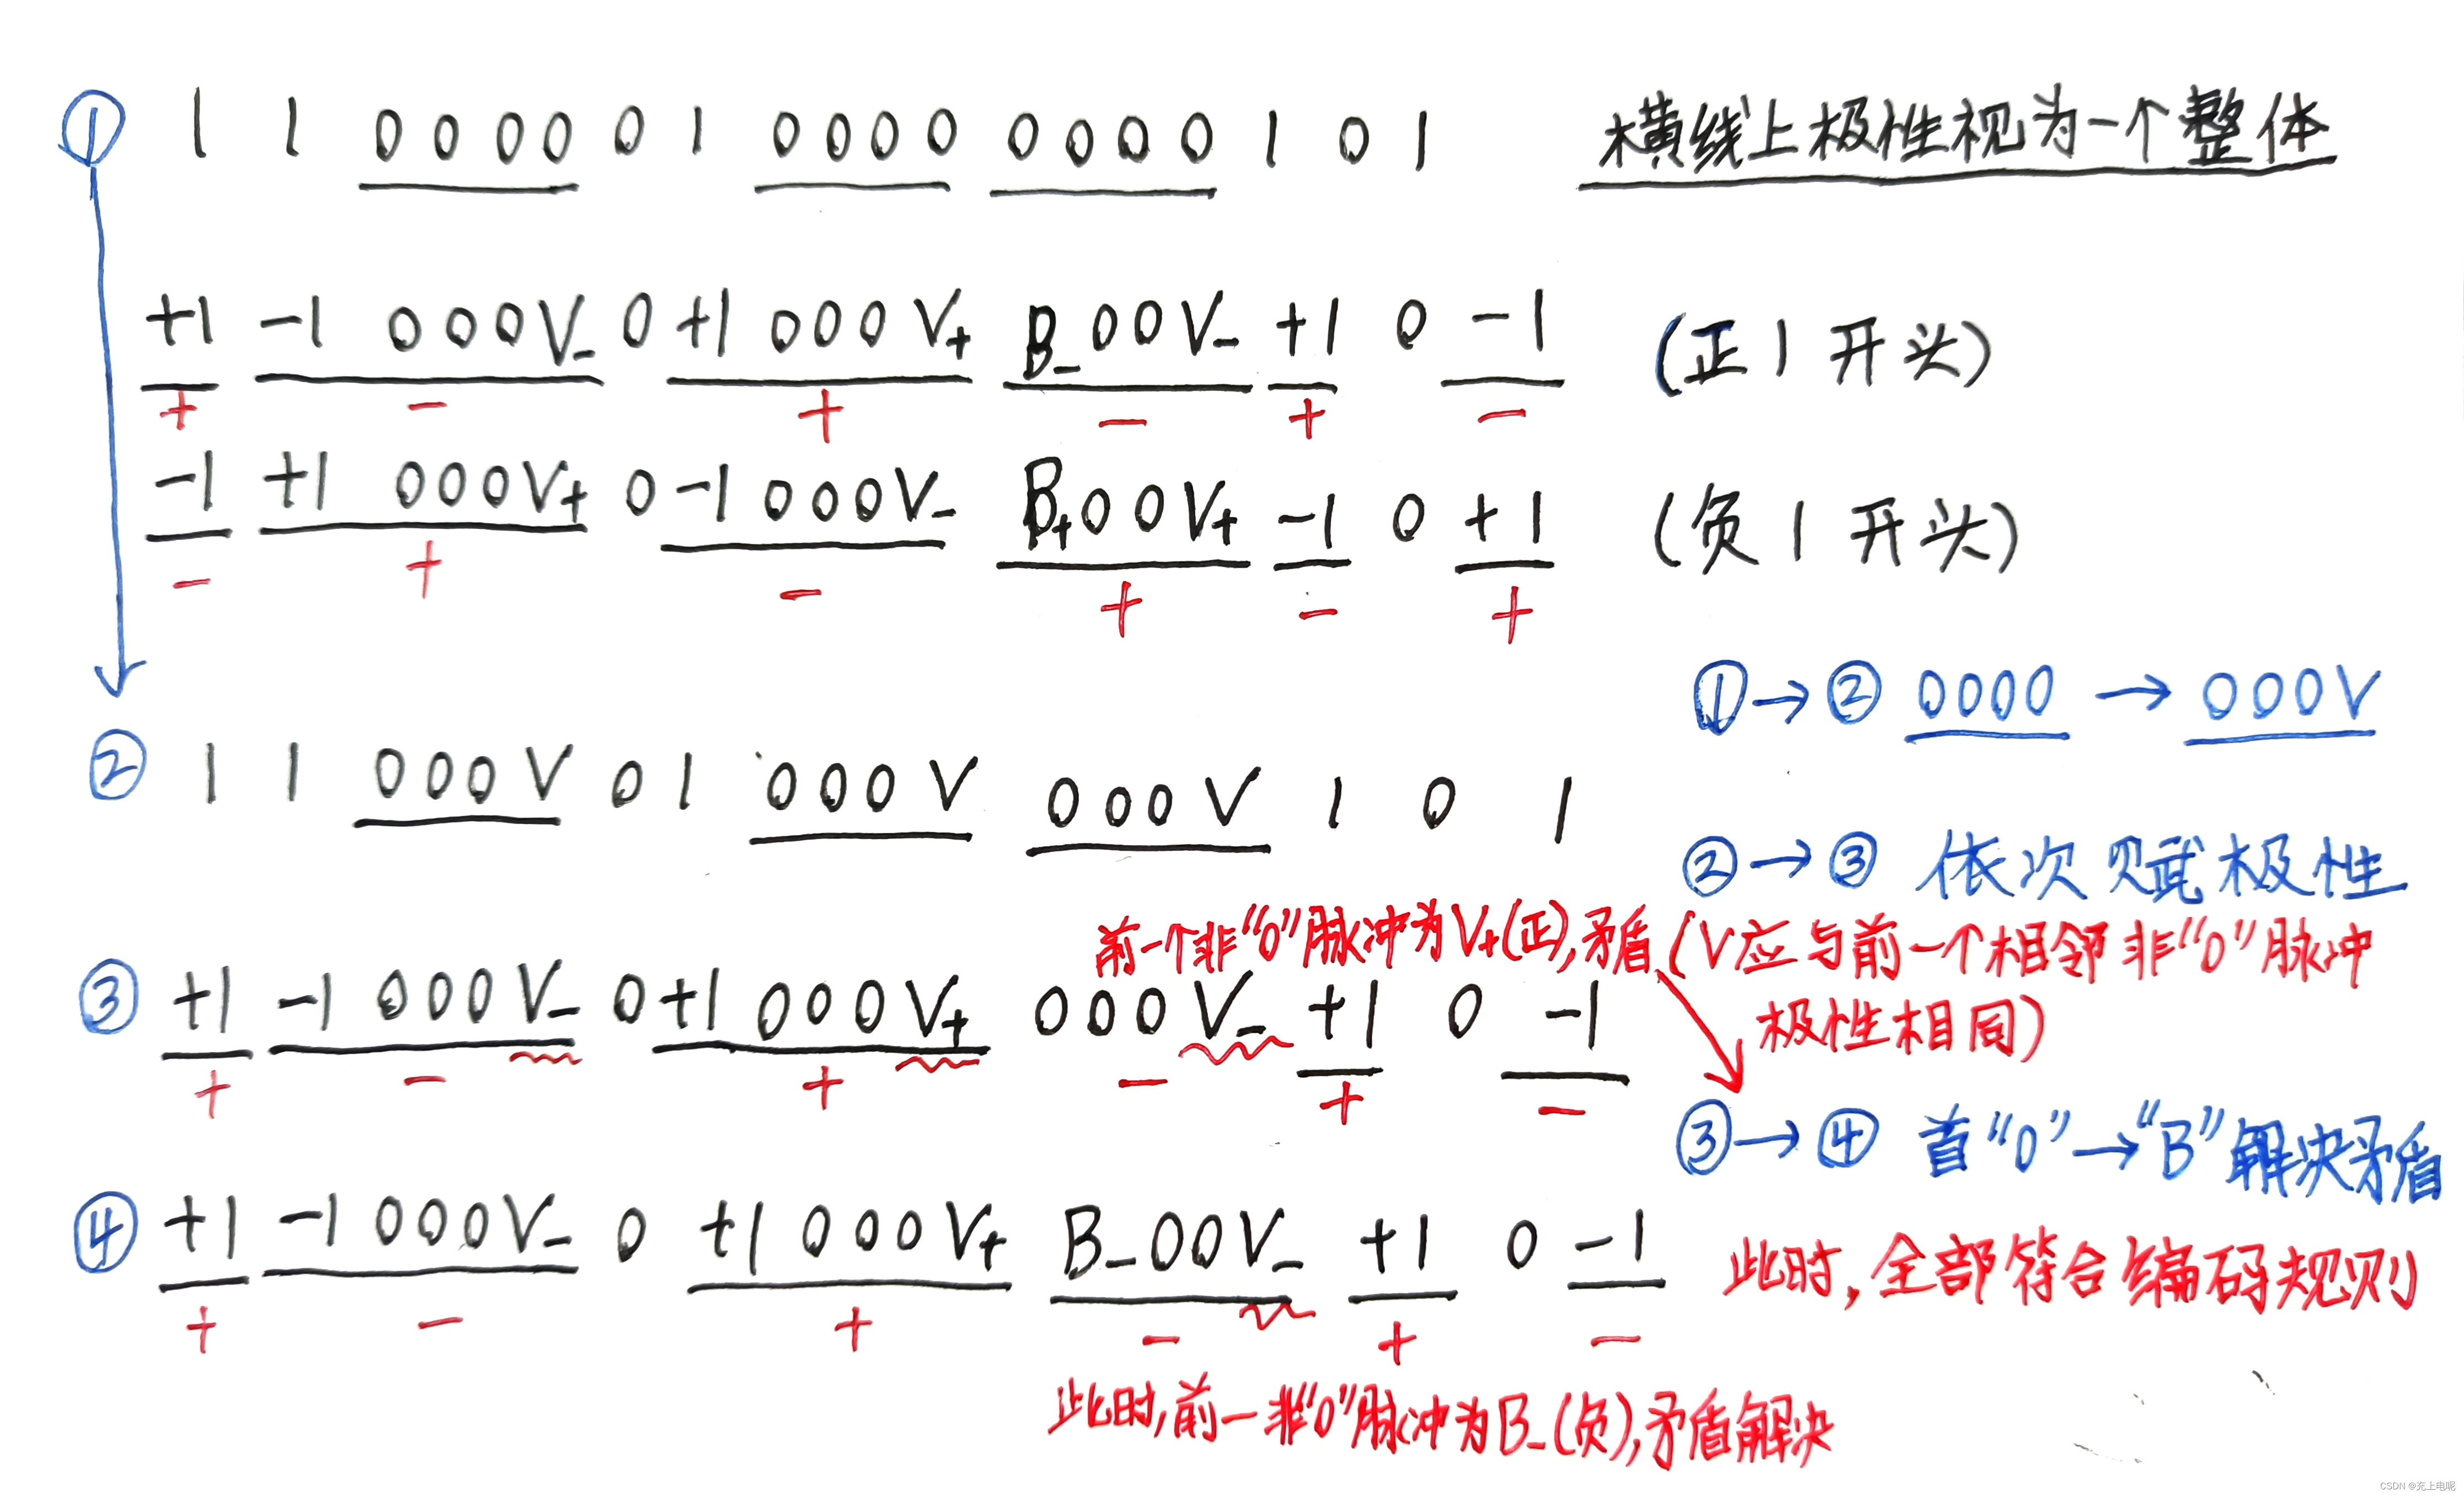 ① 1 1 0 0 0 0 0 1 0 0 0 0 0 0 0 0 1 0 1 横线上极性视为一个整体
+1 -1 0 0 0 V- 0 +1 0 0 0 V+ B- 0 0 V- +1 0 -1 (正1开头)
+ - + - + -
-1 +1 0 0 0 V+ 0 -1 0 0 0 V- B+ 0 0 V+ -1 0 +1 (负1开头)
- + - + - +
①→② 0000 → 000V
② 1 1 0 0 0 V 0 1 0 0 0 V 0 0 0 V 1 0 1
②→③ 依次赋极性
前一个非“0”脉冲为V+(正),矛盾(V应与前一个相邻非“0”脉冲
极性相同)
③ +1 -1 0 0 0 V- 0 +1 0 0 0 V+ 0 0 0 V- +1 0 -1
+ - + - + -
③→④ 首“0”→“B”解决矛盾
④ +1 -1 0 0 0 V- 0 +1 0 0 0 V+ B- 0 0 V- +1 0 -1 此时,全部符合编码规则
+ - + - + -
此时,前一非“0”脉冲为B-(负),矛盾解决
CSDN @充上电呢